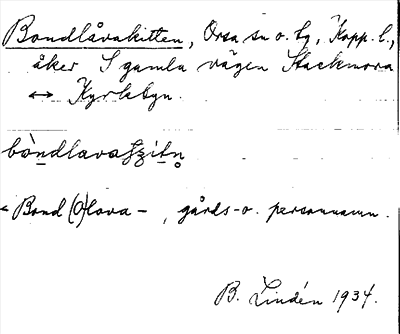 Bondlåvakitten, Orsa sn o. tg, Kopp. l.,
åker S gamla vägen Stackmora
↔ Kyrkbyn.
bòndlavaʃitn̥
< Bond(O)lova-, gårds- o. personnamn.
B. Lindén 1934.